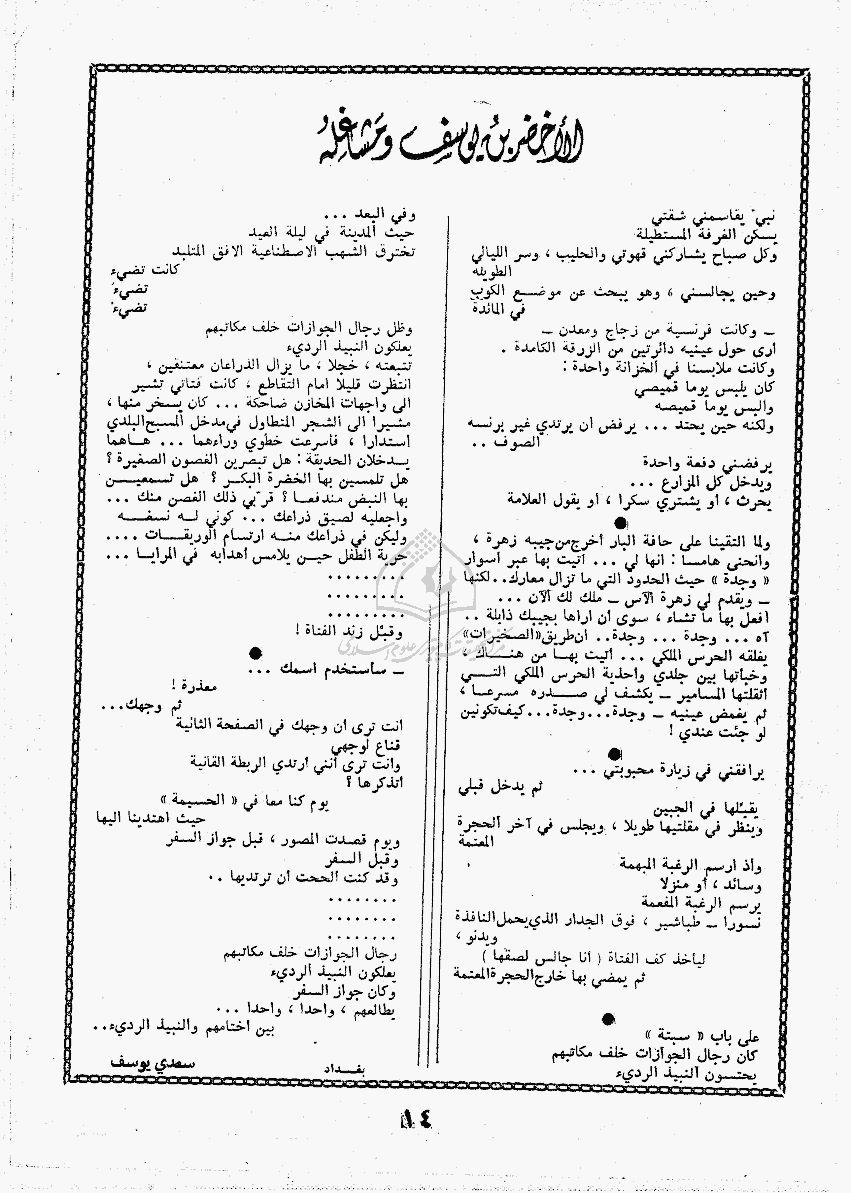 الأخضر بن يوسف ومشاغله
نبيّ يقاسمني شقتي
يسكن الغرفة المستطيلة
وكل صباح يشاركني قهوتي والحليب ، وسر الليالي
الطويله
وحين يجالسني ، وهو يبحث عن موضع الكوب
في المائدة
ـ وكانت فرنسية من زجاج ومعدن ـ
ارى حول عينيه دائرتين من الزرقة الكامدة .
وكانت ملابسنا في الخزانة واحدة :
كان يلبس يوما قميصي
والبس يوما قميصه
ولكنه حين يحتد ... يرفض ان يرتدي غير برنسه
الصوف ..
يرفضني دفعة واحدة
ويدخل كل المزارع ...
يحرث ، او يشتري سكرا ، او يقول العلامة
●
ولما التقينا على حافة البار أخرج من جيبه زهرة ،
وانحنى هامسا : انها لي ... أتيت بها عبر اسوار
« وجدة » حيث الحدود التي ما تزال معارك..لكنها
ـ ويقدم لي زهرة الآس ـ ملك لك الآن ...
افعل بها ما تشاء ، سوى ان اراها بجيبك ذابلة ..
آه ... وجدة ... وجدة.. ان طريق «الصخيرات»
يغلقه الحرس الملكي ... أتيت بها من هناك ،
وخبأتها بين جلدي واحذية الحرس الملكي التي
أثقلتها المسامير ـ يكشف لي صدره مسرعا ،
ثم يغمض عينيه ـ وجدة...وجدة...كيف تكونين
لو جئت عندي !
●
يرافقني في زيارة محبوبتي ...
ثم يدخل قبلي
يقبّلها في الجبين
وينظر في مقلتيها طويلا ، ويجلس في آخر الحجرة
المعتمة
واذ ارسم الرغبة المبهمة
وسائد ، أو منزلا
يرسم الرغبة المفعمة
نسورا ـ طباشير ، فوق الجدار الذي يحمل النافذة
ويدنو ،
ليأخذ كف الفتاة ( أنا جالس لصقها )
ثم يمضي بها خارج الحجرة المعتمة
●
على باب « سبتة »
كان رجال الجوازات خلف مكاتبهم
يحتسون النبيذ الرديء
وفي البعد ...
حيث المدينة في ليلة العيد
تخترق الشهب الاصطناعية الافق المتلبد
كانت تضيء
تضيء
تضيء
وظل رجال الجوازات خلف مكاتبهم
يعلكون النبيذ الرديء
تتبعته ، خجلا ، ما يزال الذراعان معتنقين ،
انتظرت قليلا امام التقاطع ، كانت فتاتي تشير
الى واجهات المخازن ضاحكة ... كان يسخر منها ،
مشيرا الى الشجر المتطاول في مدخل المسبح البلدي
استدارا ، فأسرعت خطوي وراءهما ... هاهما
يدخلان الحديقة : هل تبصرين الغصون الصغيرة ؟
هل تلمسين بها الخضرة البكر ؟ هل تسمعين
بها النبض مندفعا ؟ قرّبي ذلك الغصن منك ...
واجعليه لصيق ذراعك ... كوني له نسغه
وليكن في ذراعك منه ارتسام الوريقات ....
حرية الطفل حين يلامس أهدابه في المرايا ...
.........
.........
.........
وقبّل زند الفتاة !
●
ـ سأستخدم اسمك ...
معذرة !
ثم وجهك...
انت ترى ان وجهك في الصفحة الثانية
قناع لوجهي
وانت ترى أنني ارتدي الربطة القانية
أتذكرها ؟
يوم كنا معا في « الحسيمة »
حيث اهتدينا اليها
ويوم قصدت المصور ، قبل جواز السفر
وقبل السفر
وقد كنت الححت ان ترتديها ..
........
........
........
رجال الجوازات خلف مكاتبهم
يعلكون النبيذ الرديء
وكان جواز السفر
يطالعهم ، واحدا ، واحدا ...
بين اختامهم والنبيذ الرديء..
بغداد
سعدي يوسف
١٤